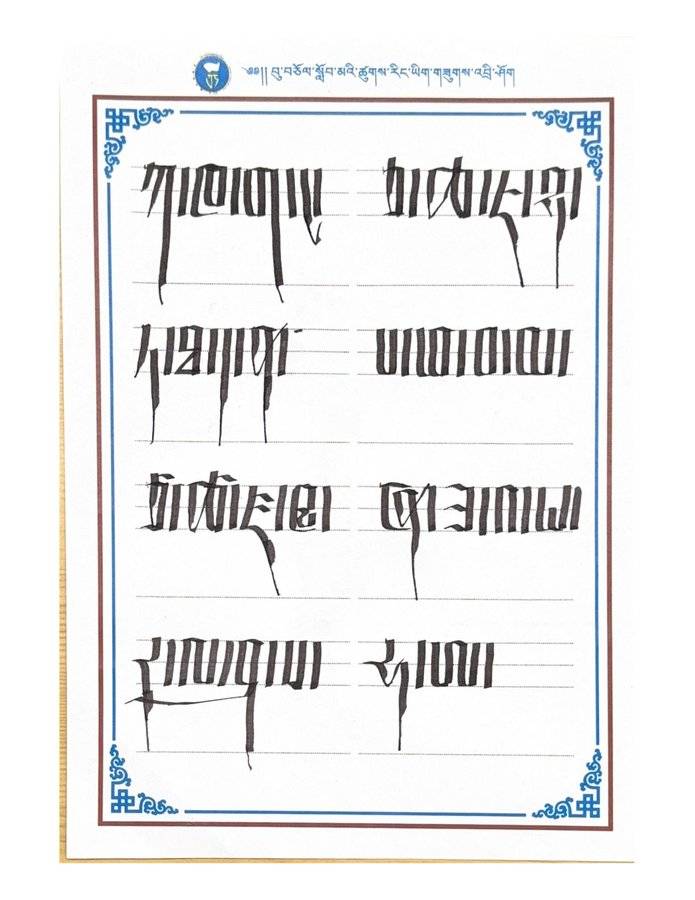 ༄༅།། བུ་བཅོལ་སློབ་མའི་ཚུགས་རིང་ཡིག་གཟུགས་འབྲི་ཤོག
ཀ་ཁ་ག་ང་ ཅ་ཆ་ཇ་ཉ་
ཏ་ཐ་ད་ན་ པ་ཕ་བ་མ་
ཙ་ཚ་ཛ་ཝ་ ཞ་ཟ་འ་ཡ་
ར་ལ་ཤ་ས་ ཧ་ཨ་